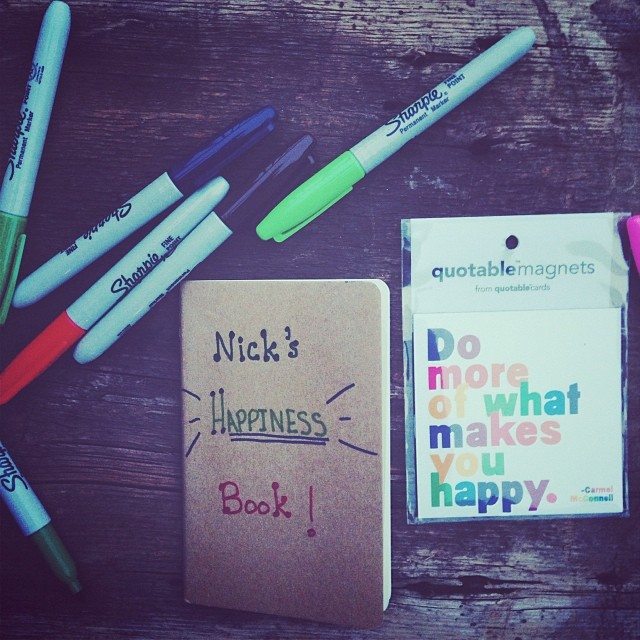 Sharpie
Permanent Marker
Sharpie
FINE
Sharpie
FINE
Sharpie
FINE
POINT
Permanent Marker
Sharpie
Nick's
HAPPINESS
Book!
quotable magnets
from quotable cards
Do
more
of what
makes
you
happy.
-Carmel
McConnell